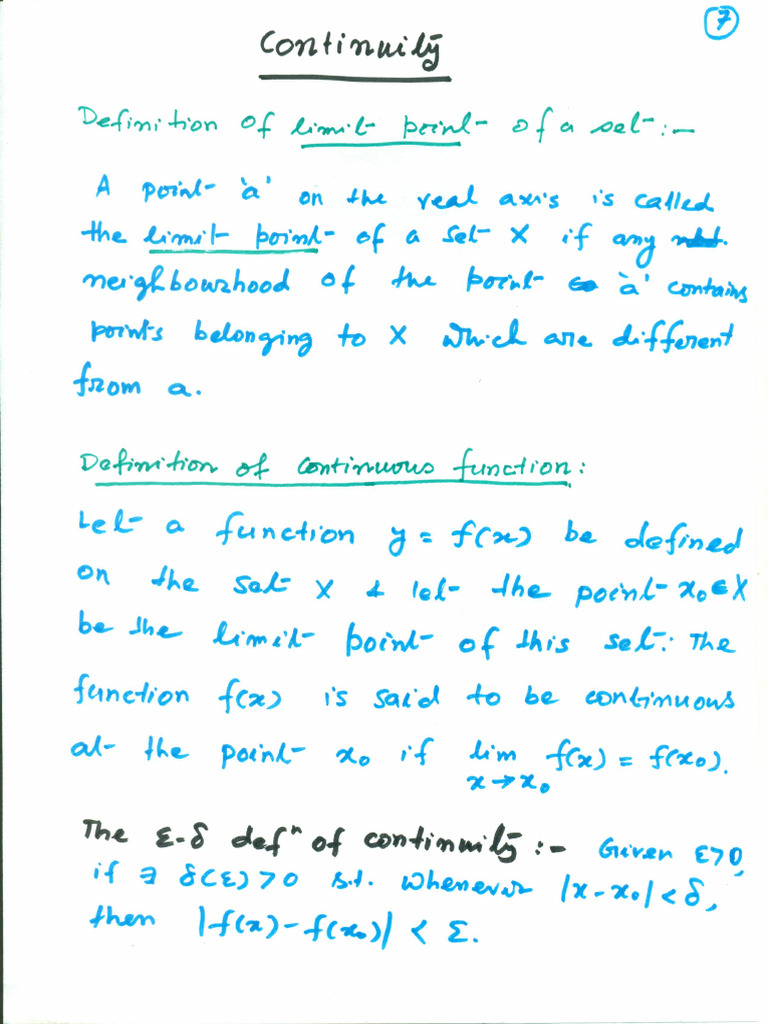 7
Continuity
Definition of limit point of a set:-
A point 'a' on the real axis is called
the limit point of a set X if any
neighbourhood of the point 'a' contains
points belonging to X which are different
from a.
Definition of continuous function:
Let a function y = f(x) be defined
on the set X & let the point x₀ ∈ X
be the limit point of this set. The
function f(x) is said to be continuous
at the point x₀ if lim f(x) = f(x₀).
x→x₀
The ε-δ defⁿ of continuity :- Given ε>0,
if ∃ δ(ε)>0 s.t. whenever |x-x₀|<δ,
then |f(x)-f(x₀)| < ε.